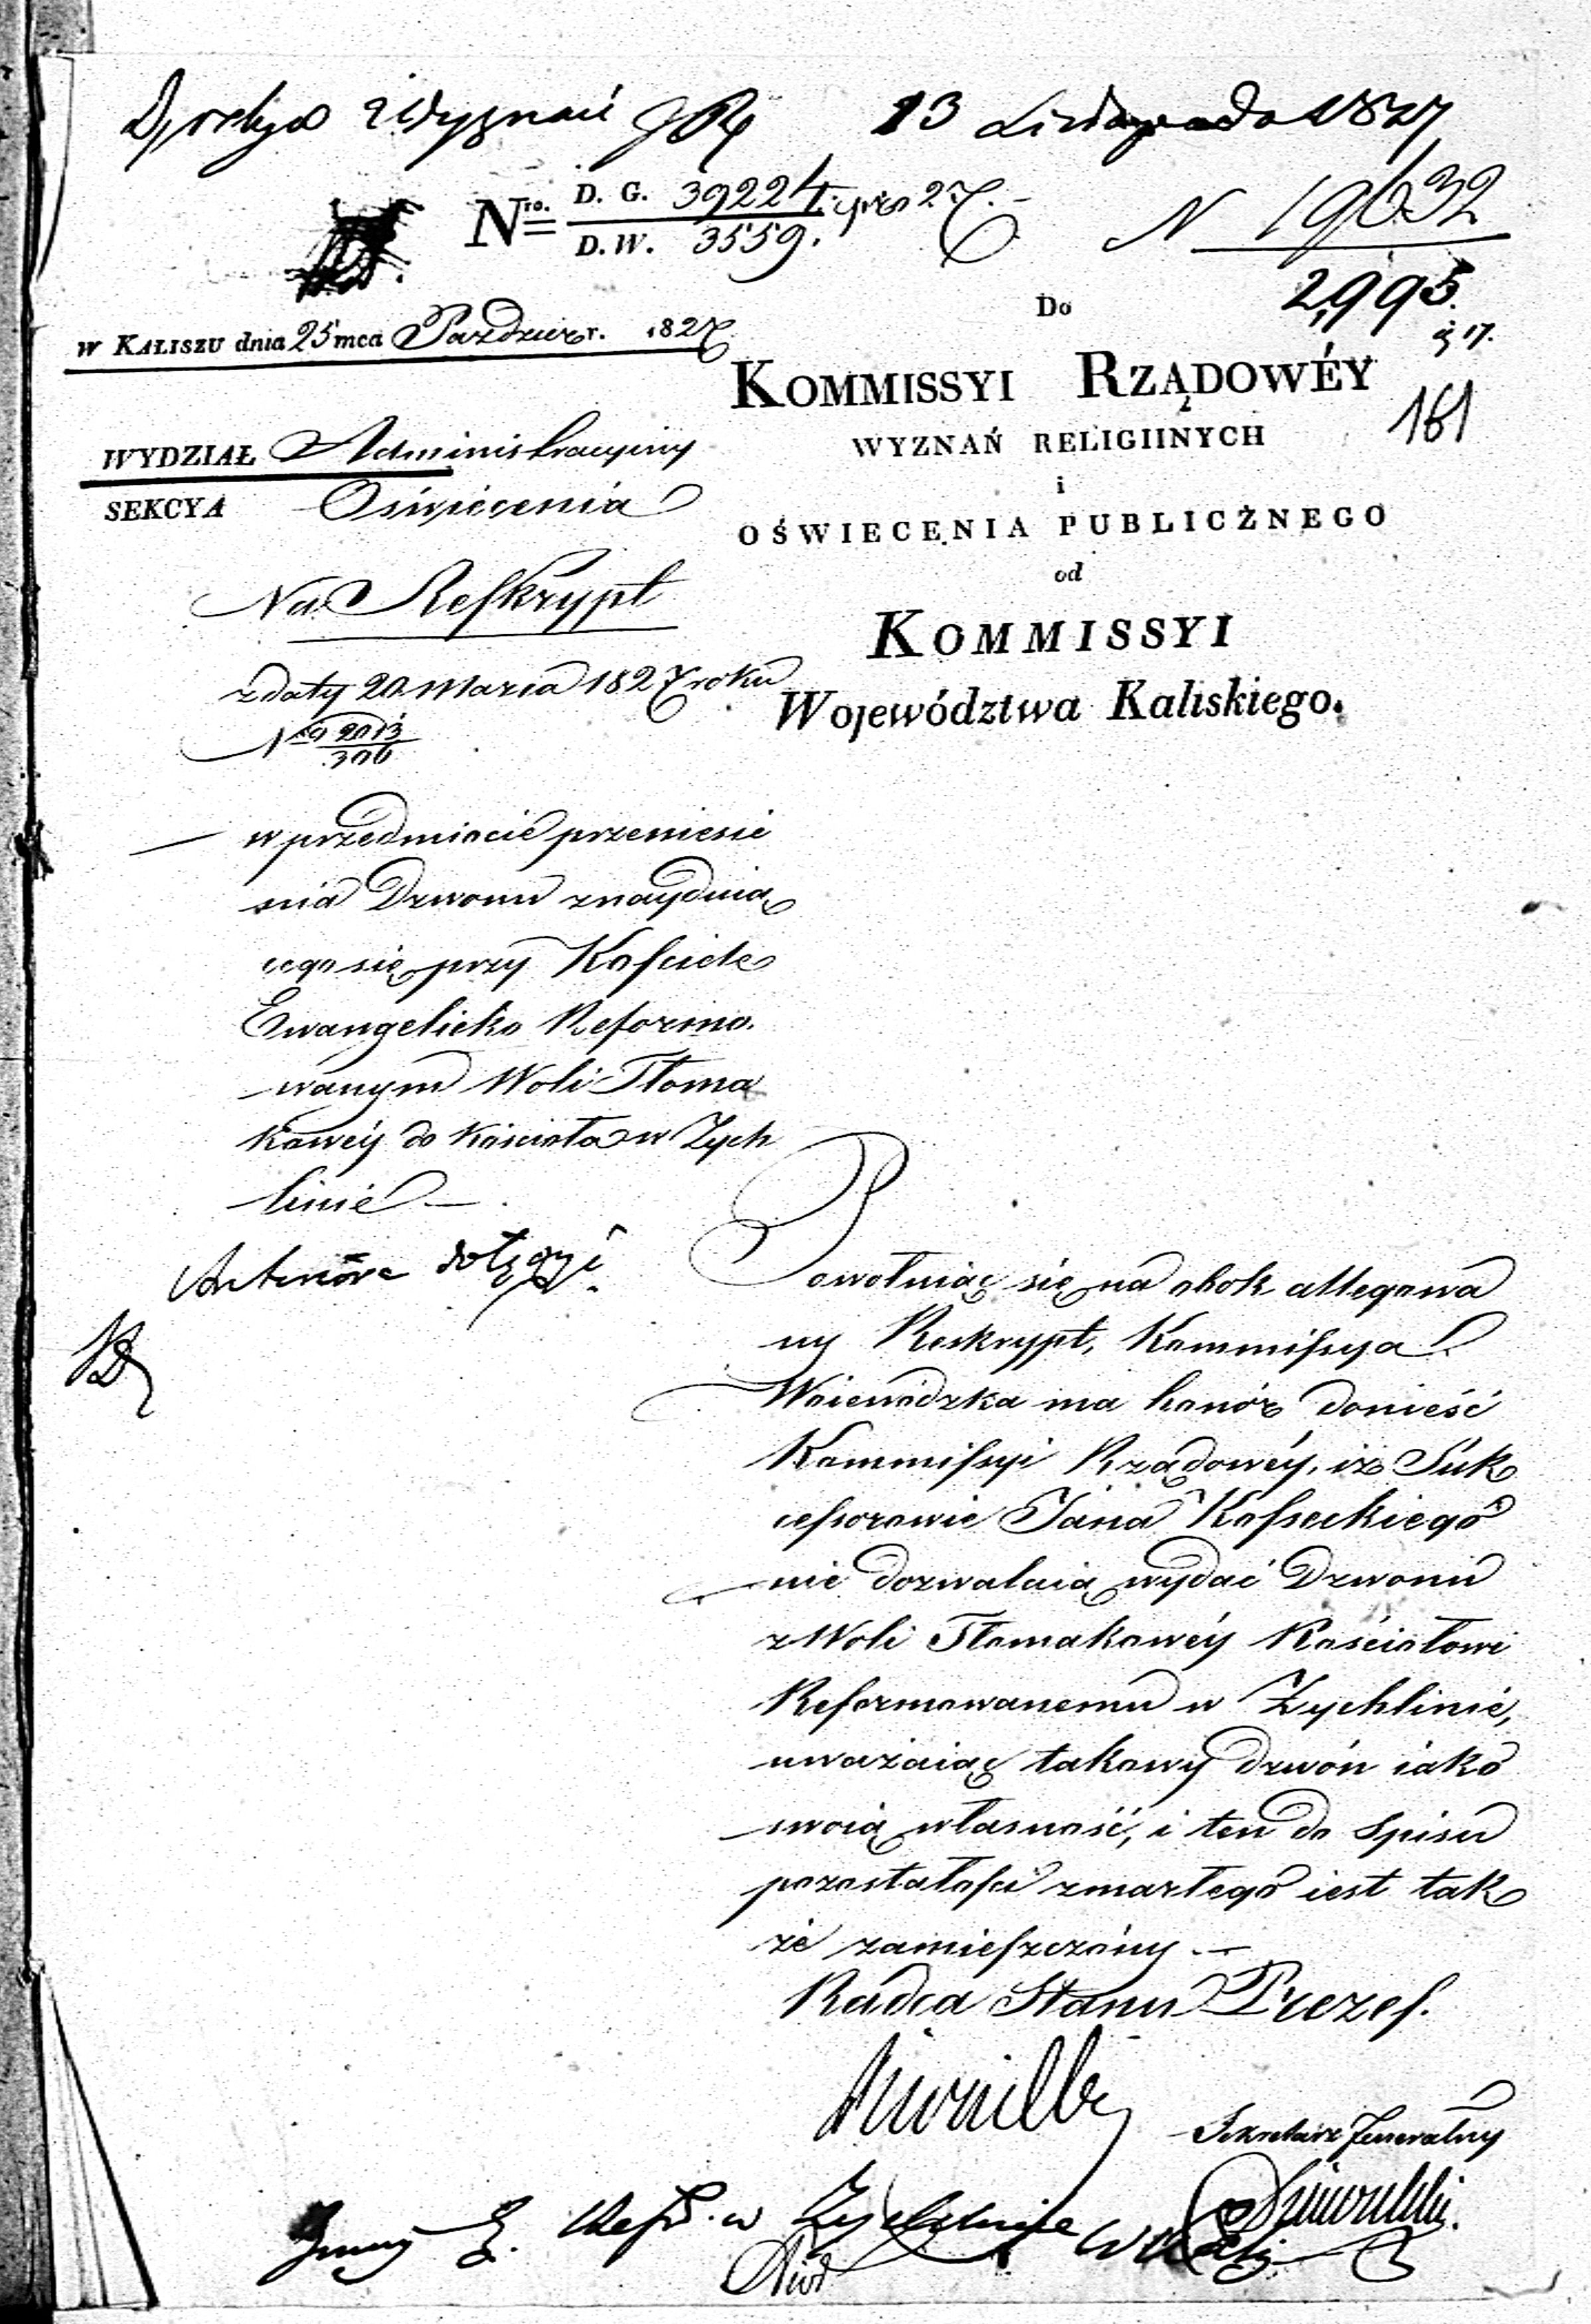 Dyrekcya Wyznań 13 Listopada 1827
Nro. D. G. 39224
D. W. 3559.
N 19632
2995
181
w KALISZU dnia 25 mca Paździer r. 1827
Do
KOMMISSYI RZĄDOWÉY
WYZNAŃ RELIGIINYCH
i
OŚWIECENIA PUBLICZNEGO
od
KOMMISSYI
Województwa Kaliskiego.
WYDZIAŁ Administracyiny
SEKCYA Oświecenia
Na Reskrypt
z daty 20 Marca 1827 roku
Nro 2013
306
w przedmiocie przeniesie
nia Dzwonu znayduią
cego się przy Kościele
Ewangelicko Reformo
wanym Woli Tłoma
kowéy do Kościoła w Zych
linie —
Aktów dołączyć
Powołuiąc się na obok allegowa
ny Reskrypt, Kommissya
Woiewódzka ma honór donieść
Kommissyi Rządowéy, iż Suk
cessorowie Jana Kosseckiego
nie dozwalaią wydać Dzwonu
z Woli Tłomakowéy Kościołowi
Reformowanemu w Żychlinie,
uważaiąc takowy dzwón iako
swoią własność, i ten do Spisu
pozostałości zmarłego iest tak
że zamieszczóny. —
Radca Stanu Prezes.
Sekretarz Jeneralny
Gminy E. Ref. w Zychlinie W. Kali